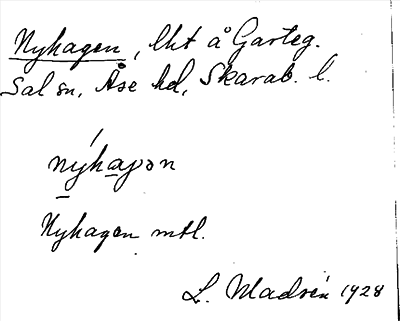 Nyhagen, lht å Garteg.
Sal sn, Åse hd, Skarab. l.
nýhaγən
Nyhagen mtl.
L. Madsén 1928